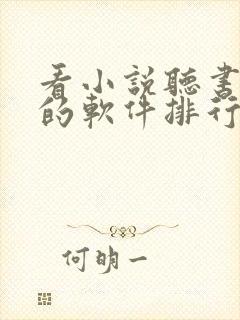 看小説聽書
的軟件排行
何明一